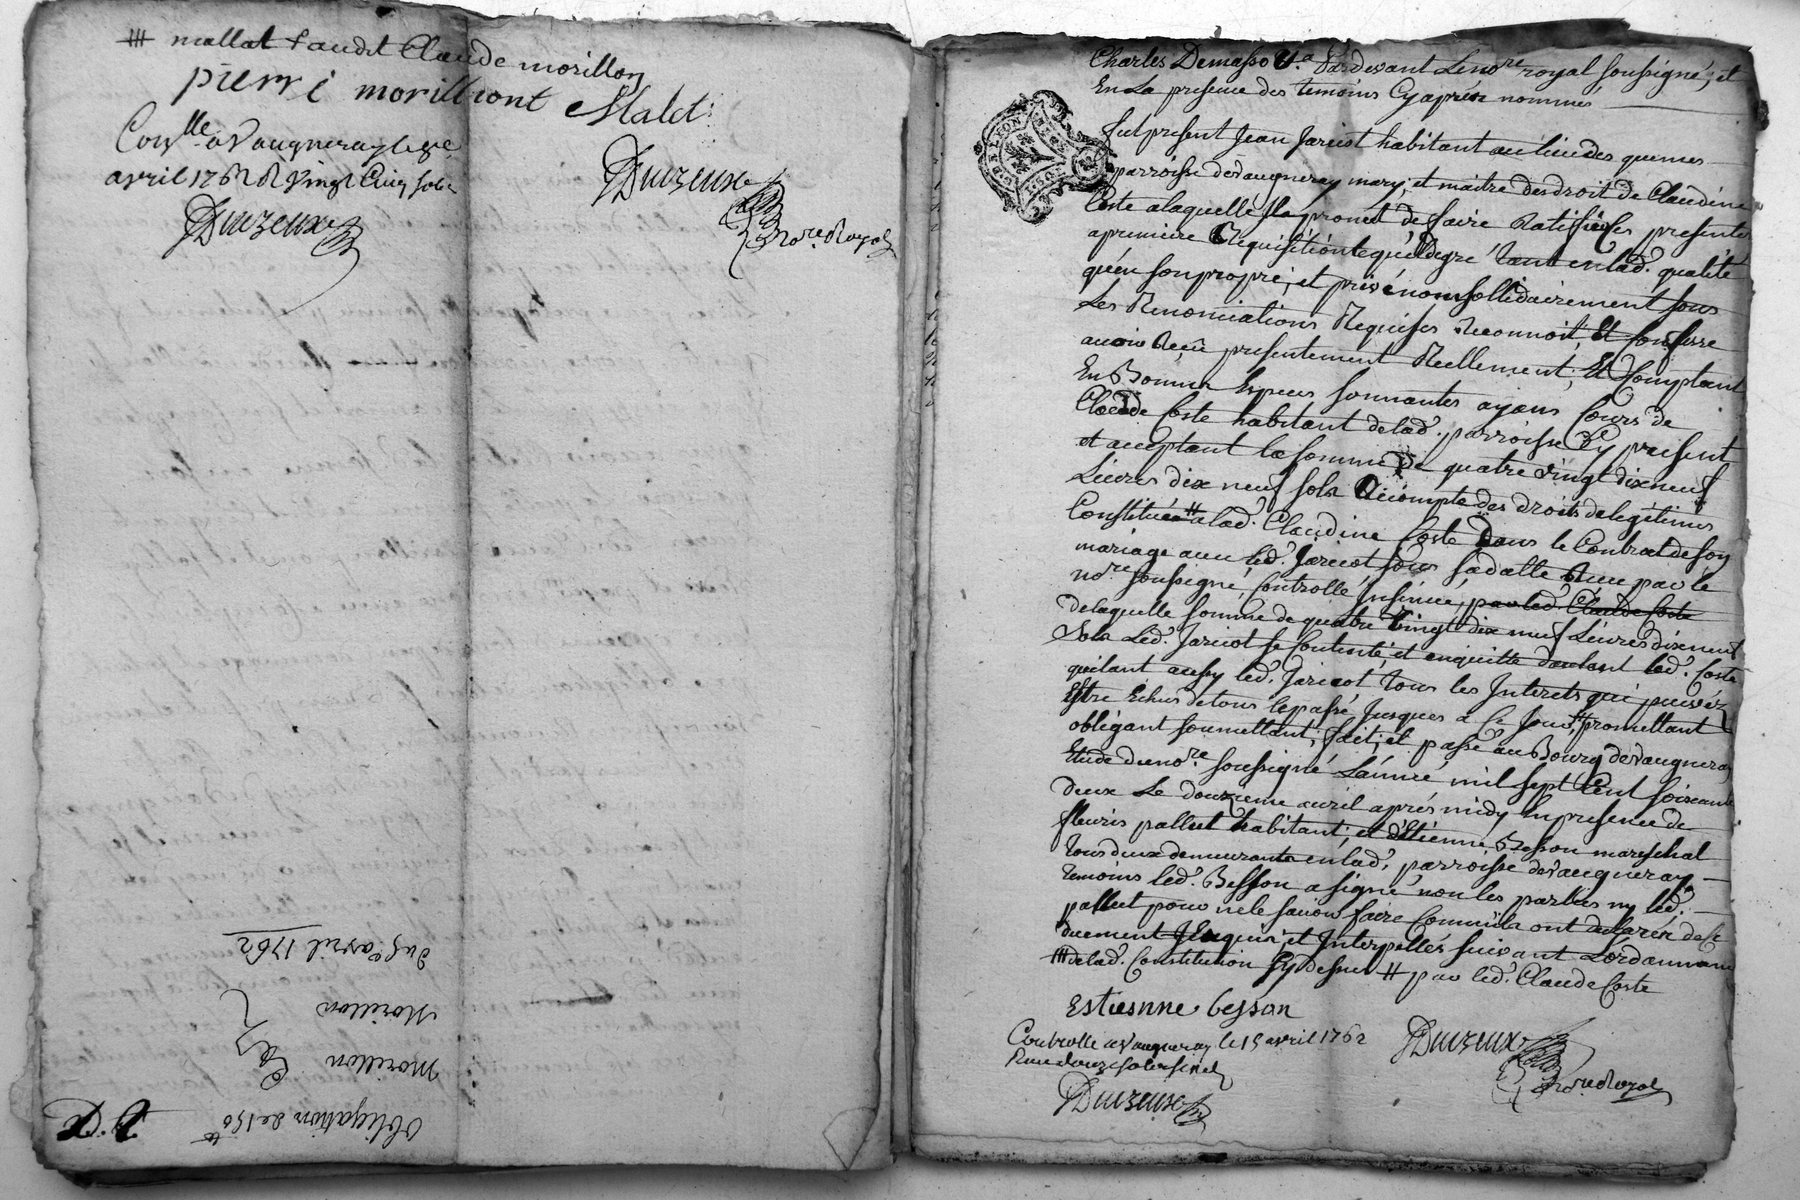 mallat & audt Claude morillon
pierre morillront Malet
Conlle a Vaugneray le 9e
avril 1762 R vingt Cinq sols
JDuvzeux
JDuvzeux
nore Royal
du 5e avril 1762
Morillon
Morillon
Obligation de 150tt
Charles Demasso &a Pardevant Le nore royal soussigné, et
En La presence des temoins Cyaprés nommés
fut present Jean Jaricot habitant au lieu des quemes
parroisse de vaugneray mary, et maitre des droit de Claudine
Coste a laquelle Il promet de faire Ratifier les presentes
a premiere Requisition lequel de gré tant en lad. qualité
qu'en son propre, et privé nom sollidairement sous
Les Renonciations Requises Reconnoit, Et Confesse
avoir Reçu presentement Reellement, Et Comptant
En Bonnes Especes sonnantes ayans Cours de
Claude Coste habitant de lad. parroisse Cy present
et acceptant la somme De quatre vingt dix neuf
Livres dix neuf sols a Compte des droits de legitimes
Constitués # a lad. Claudine Coste Dans le Contrat de son
mariage avec led. Jaricot sous sa datte Reçu par le
nore soussigné, Controllé Insinué, par led. Claude Coste
de laquelle somme de quatre vingt dix neuf Livres dix neuf
sols Led. Jaricot se Contente, et en quitte led. Coste
quitant aussy led. Jaricot tous les Interets qui peuvent
Estre Echus de tous le passé Jusques a Ce Jour, promettant
obligeant soumettant, fait, et passé au Bourg de vaugneray
Etude du nore soussigné L'année mil sept Cent soixante
deux Le douzieme avril aprés midy En presence de
fleuris pallut habitant, et d'Etienne Besson mareschal
tous deux demeurants en lad. parroisse de vaugneray
temoins led. Besson a signé non les parties ny led.
pallut pour ne le savoir faire Comme ils ont declarés de Ce
duement Enquis, et Interpellés suivant L'ordonnance
de lad. Constitution Cy dessus # par led. Claude Coste
Estiesnne besson
Controlle a Vaugneray le 15 avril 1762
Reçu douze sols six d
JDuvzeux
JDuvzeux
nore Royal